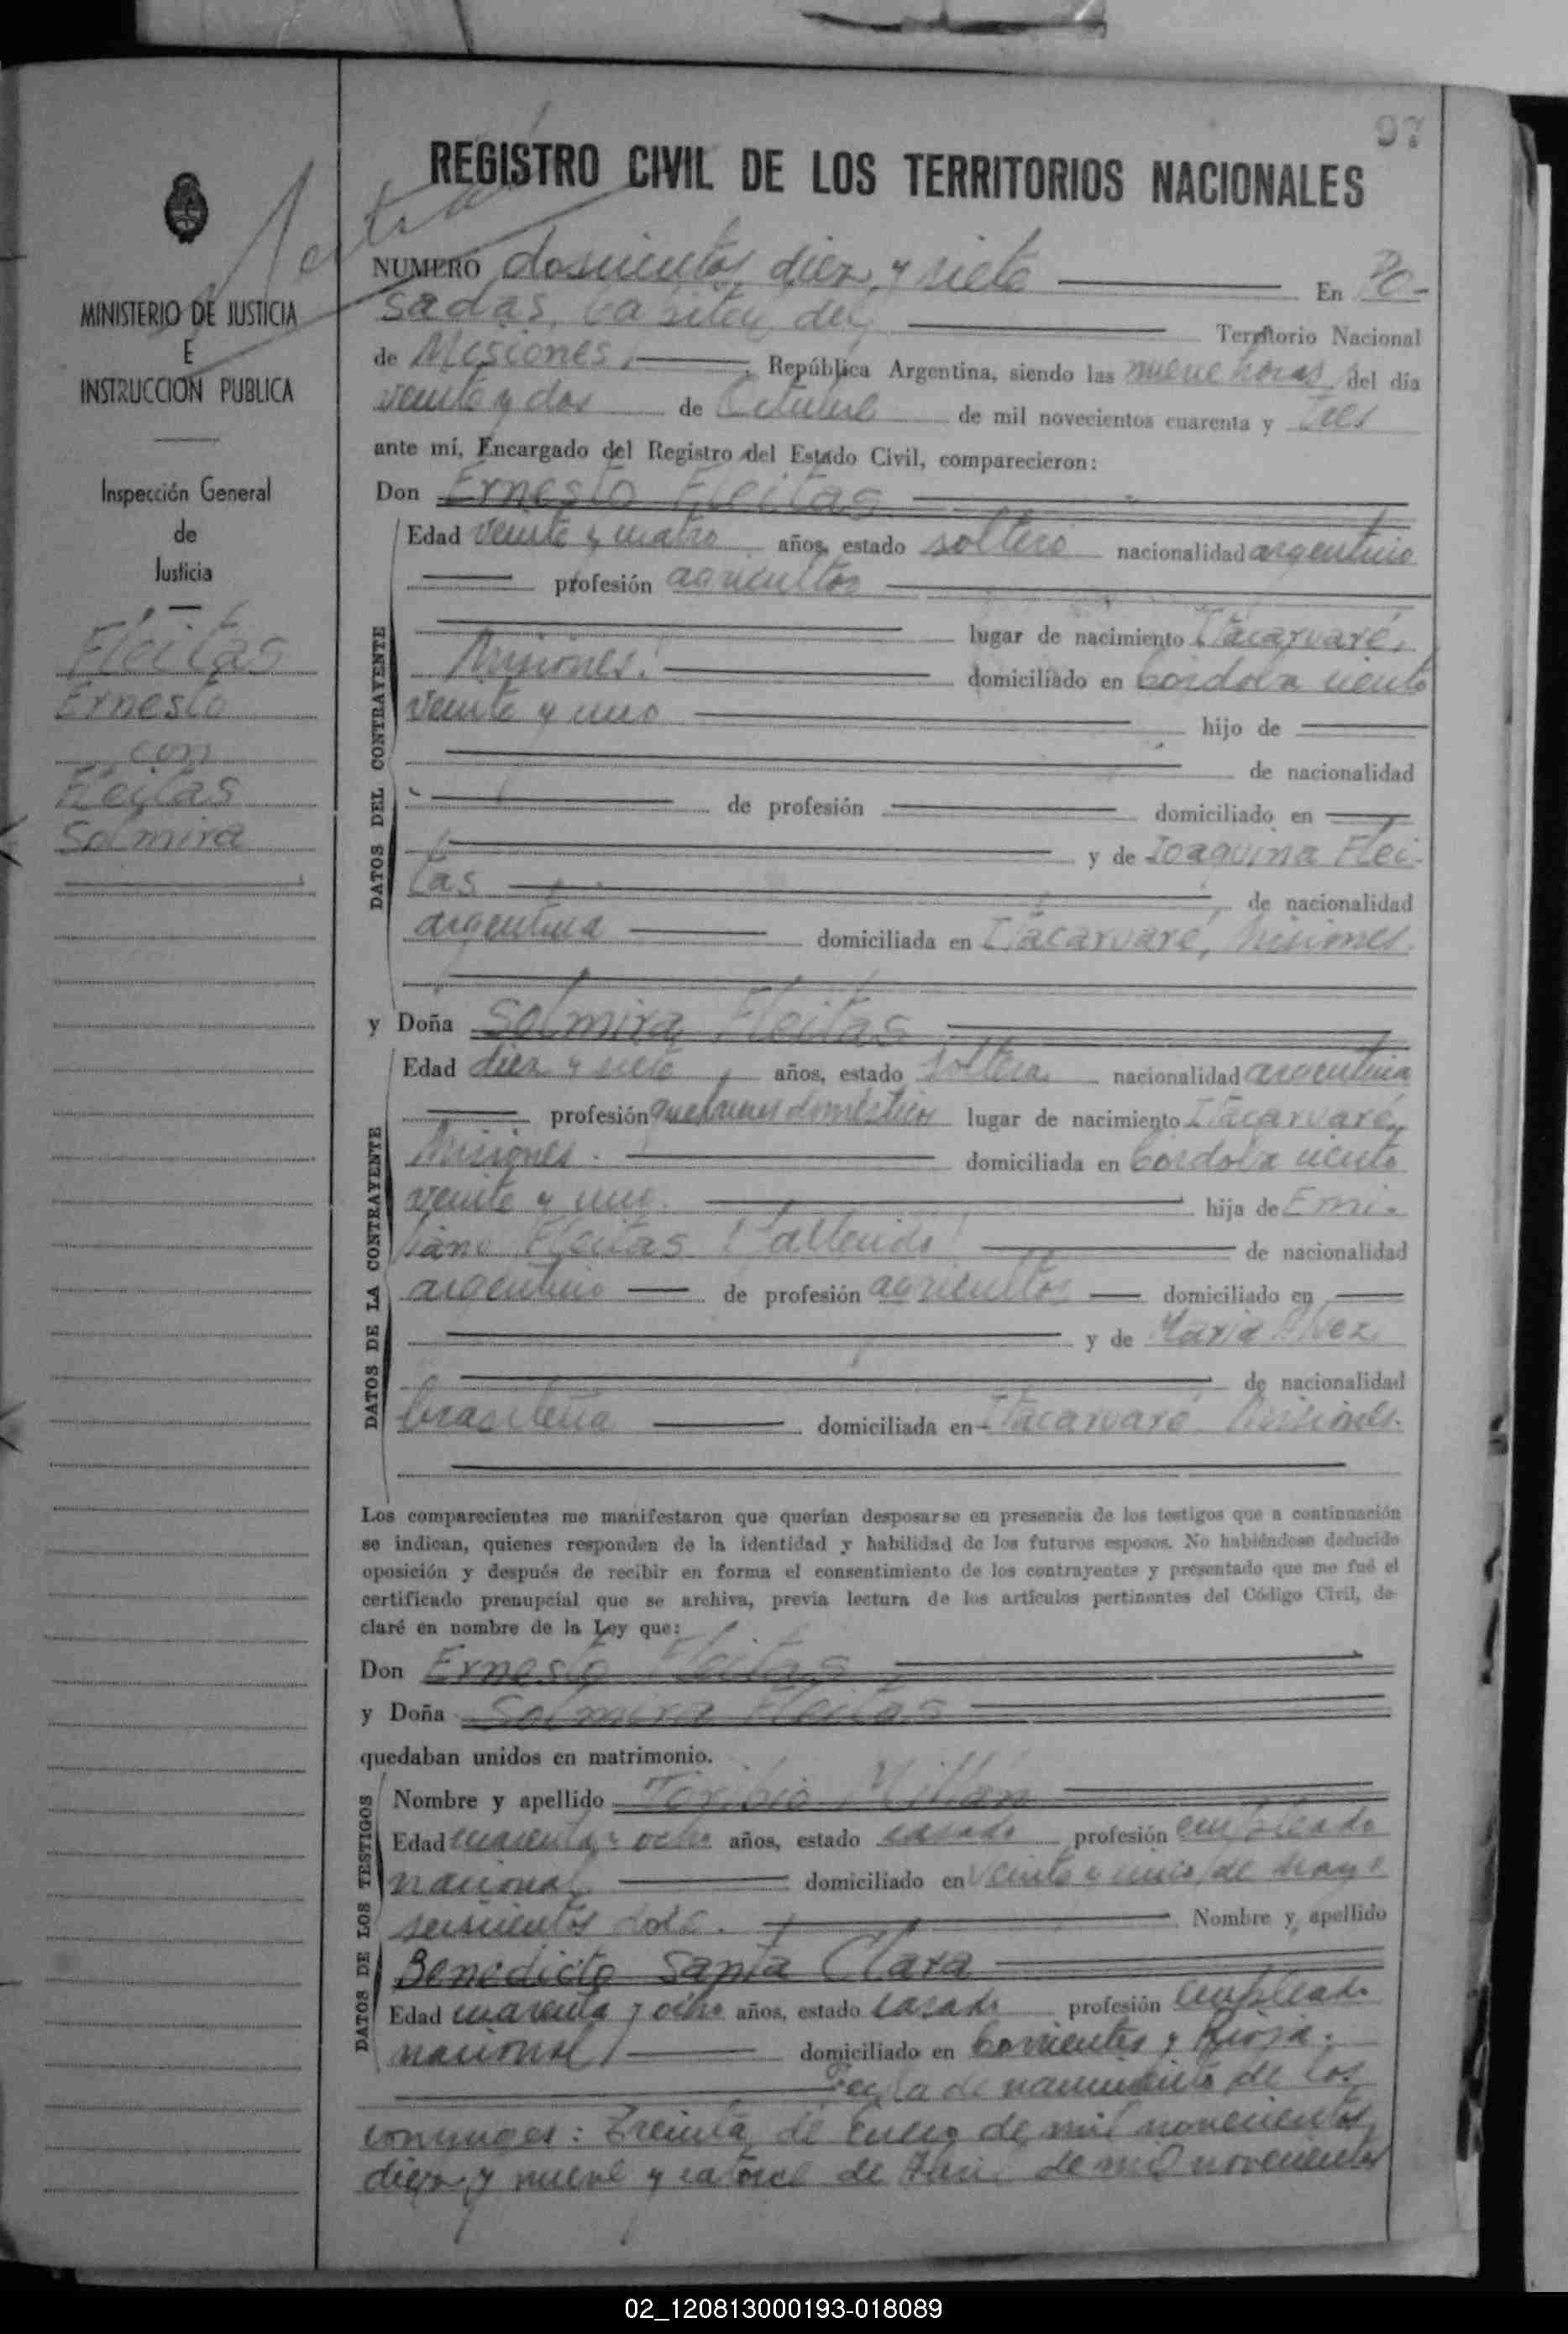 97
REGISTRO CIVIL DE LOS TERRITORIOS NACIONALES
MINISTERIO DE JUSTICIA
E
INSTRUCCION PUBLICA
Inspección General
de
Justicia
Fleitas
Ernesto
con
Fleitas
Solmira
NUMERO doscientos diez y siete En Po-
sadas, Capital del Territorio Nacional
de Misiones, República Argentina, siendo las nueve horas del día
veinte y dos de Octubre de mil novecientos cuarenta y tres
ante mí, Encargado del Registro del Estado Civil, comparecieron:
Don Ernesto Fleitas
DATOS DEL CONTRAYENTE
Edad veinte y cuatro años, estado soltero nacionalidad argentino
profesión agricultor
lugar de nacimiento Itacaruaré,
Misiones. domiciliado en Córdoba ciento
veinte y uno hijo de
de nacionalidad
de profesión domiciliado en
y de Joaquina Flei-
tas de nacionalidad
argentina domiciliada en Itacaruaré, Misiones.
y Doña Solmira Fleitas
DATOS DE LA CONTRAYENTE
Edad diez y siete años, estado soltera nacionalidad argentina
profesión quehaceres domésticos lugar de nacimiento Itacaruaré,
Misiones. domiciliada en Córdoba ciento
veinte y uno. hija de Emi-
liano Fleitas (fallecido) de nacionalidad
argentino de profesión agricultor domiciliado en
y de Maria Alvez
de nacionalidad
brasileña domiciliada en Itacaruaré Misiones.
Los comparecientes me manifestaron que querían desposarse en presencia de los testigos que a continuación
se indican, quienes responden de la identidad y habilidad de los futuros esposos. No habiéndose deducido
oposición y después de recibir en forma el consentimiento de los contrayentes y presentado que me fué el
certificado prenupcial que se archiva, previa lectura de los artículos pertinentes del Código Civil, de-
claré en nombre de la Ley que:
Don Ernesto Fleitas
y Doña Solmira Fleitas
quedaban unidos en matrimonio.
DATOS DE LOS TESTIGOS
Nombre y apellido Toribio Millán
Edad cuarenta y ocho años, estado casado profesión empleado
nacional domiciliado en veinte y cinco de Mayo
seiscientos doce. Nombre y apellido
Benedicto Santa Clara
Edad cuarenta y ocho años, estado casado profesión empleado
nacional domiciliado en Corrientes y Rioja.
Fecha de nacimiento de los
conyuges: Treinta de Enero de mil novecientos
diez y nueve y catorce de de mil novecientos
02_120813000193-018089